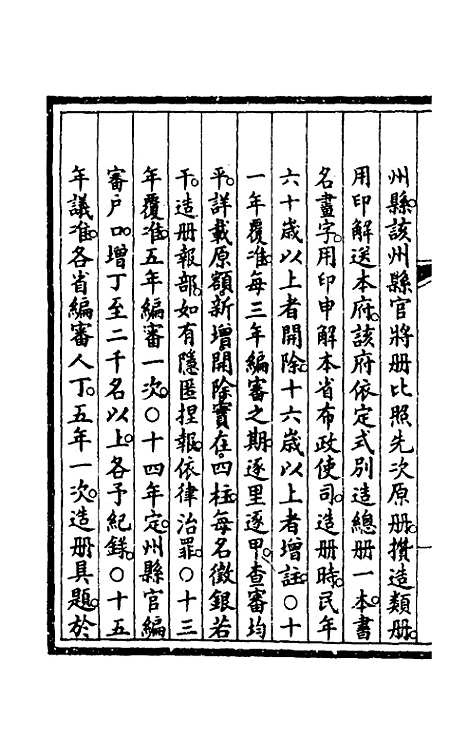 州縣。該州縣官將册比照先次原册。攢造類册。
用印解送本府。該府依定式別造總册一本。書
名畫字。用印申解本省布政使司。造册時。民年
六十歲以上者開除。十六歲以上者增註。○十
一年覆准。每三年編審之期。逐里逐甲。查審均
平。詳載原額新增開除實在。四柱。每名徵銀若
干。造册報部。如有隱匿捏報。依律治罪。○十三
年覆准。五年編審一次。○十四年定。州縣官編
審戶口。增丁至二千名以上。各予紀錄。○十五
年議准。各省編審人丁。五年一次。造册具題。於